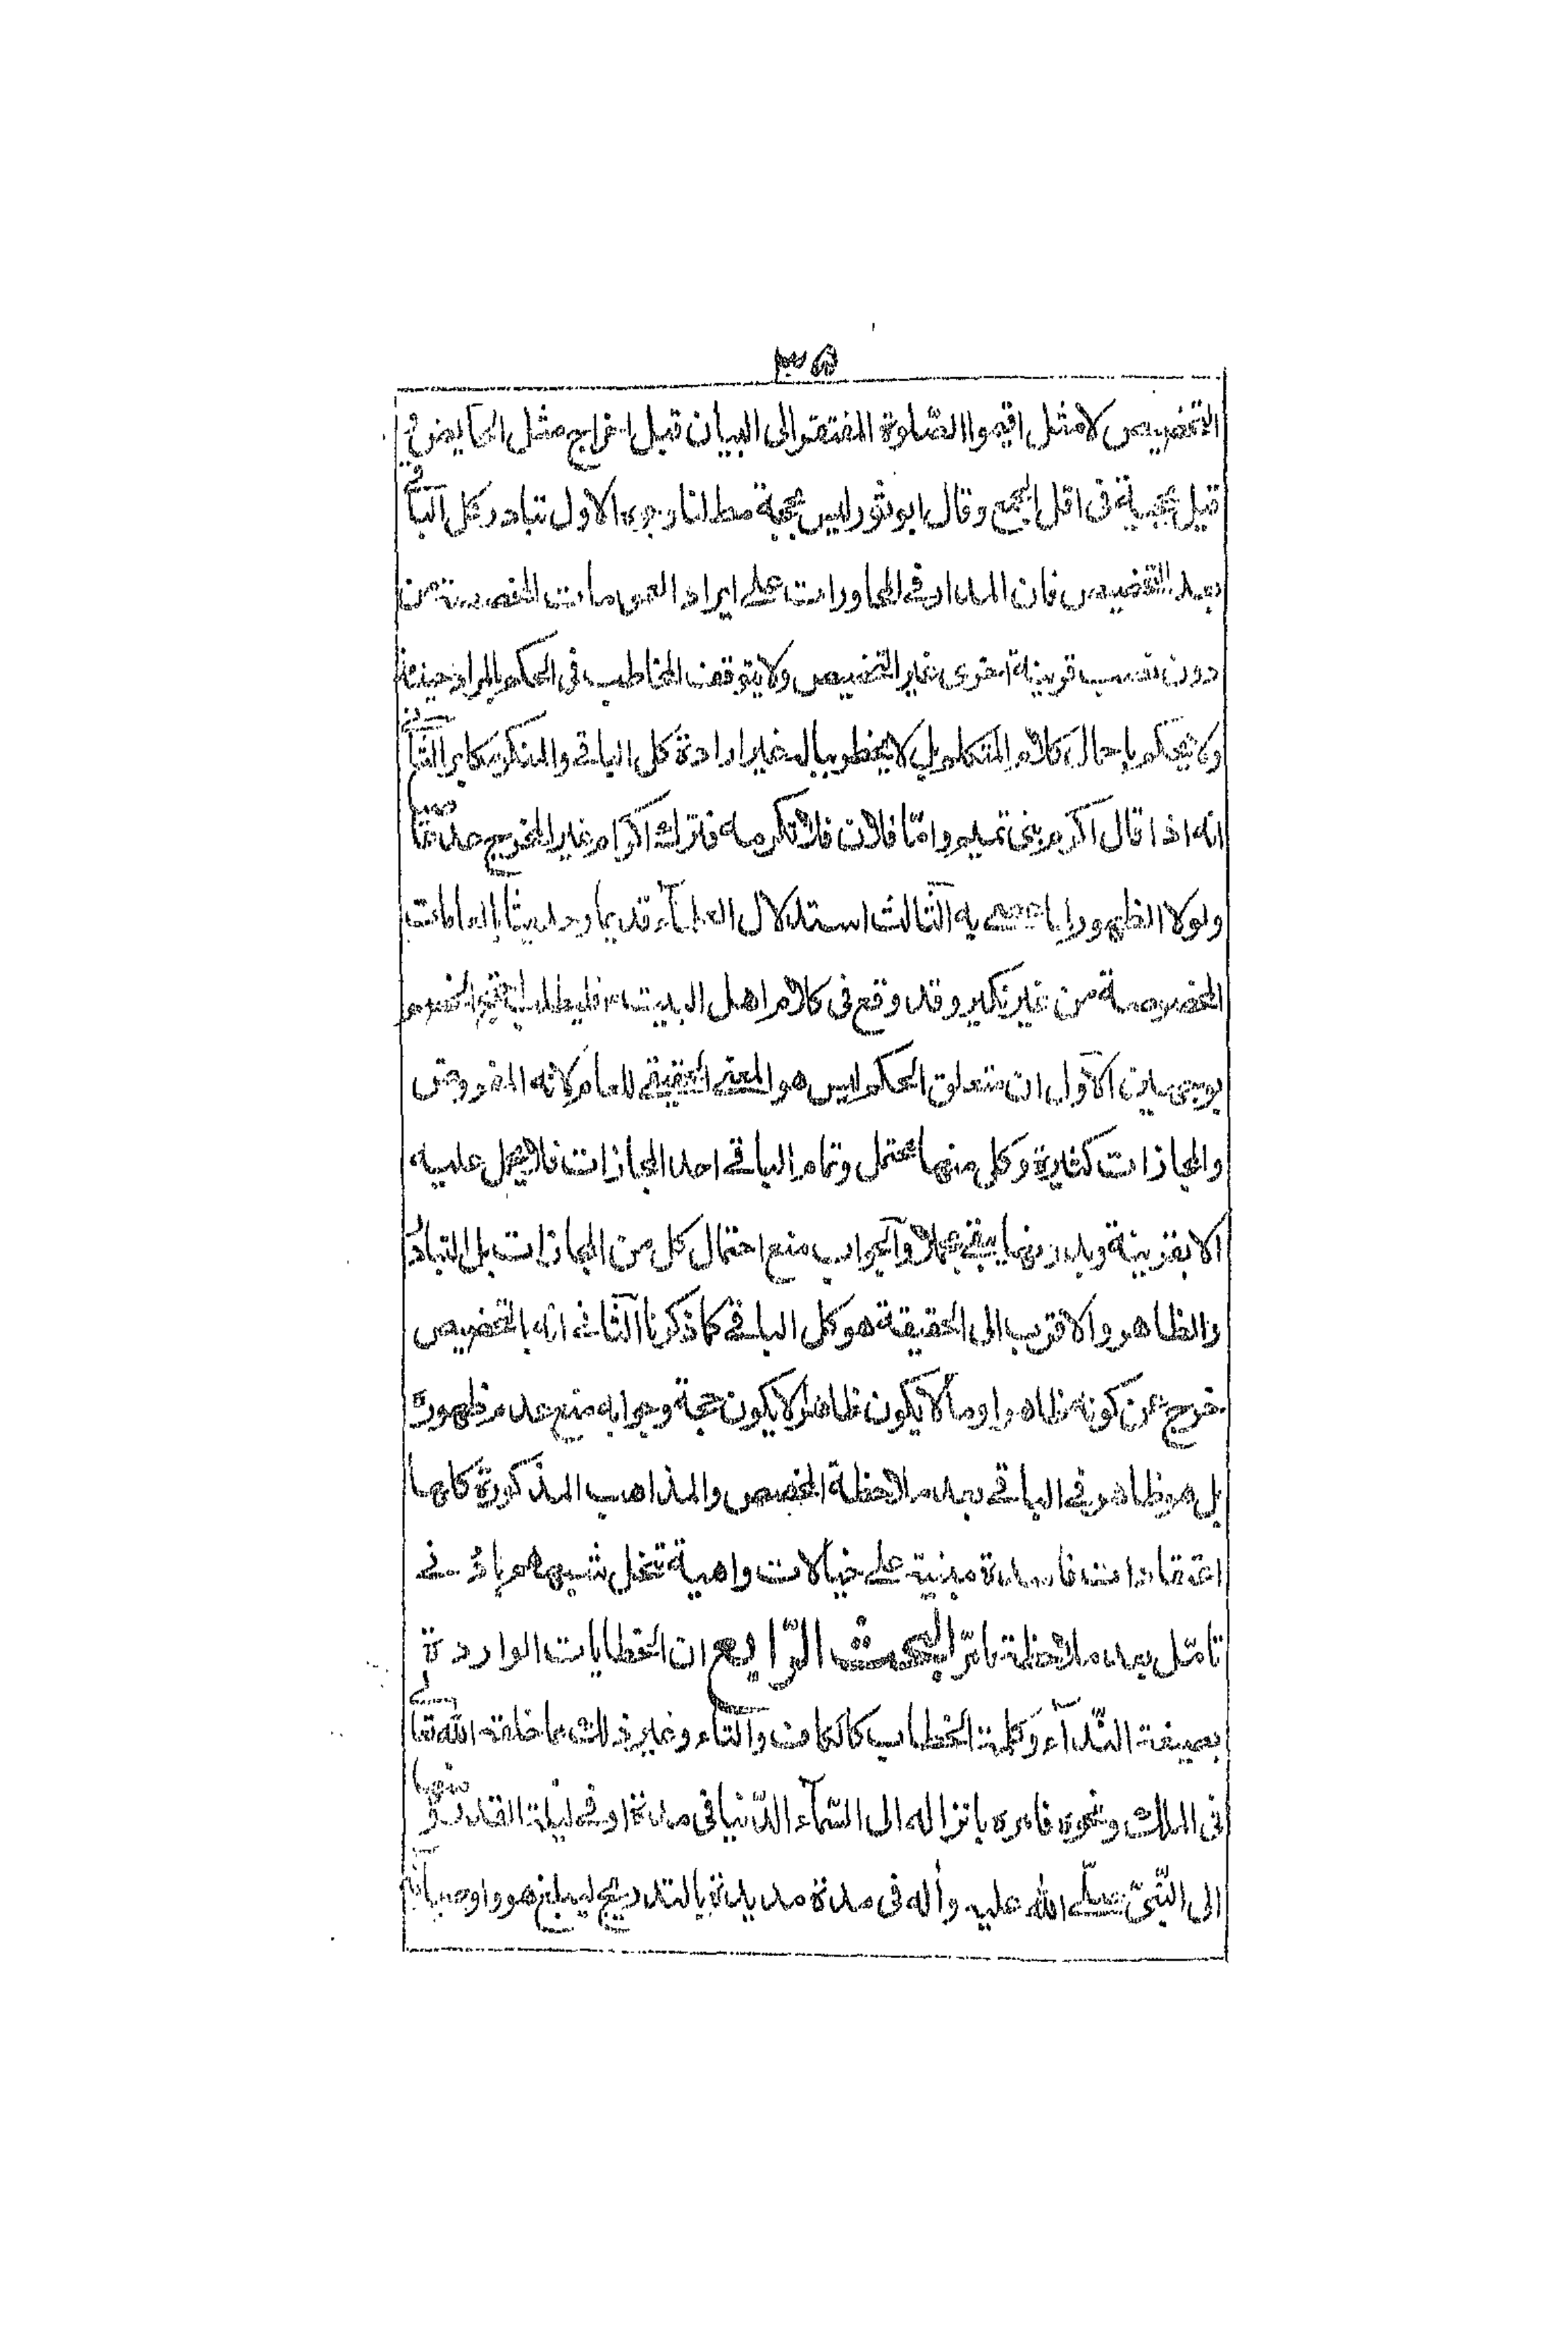 ٣٥
التخصيص لا مثل اقيموا الصّلوة المفتقر الى البيان قبل اخراج مثل الحايض و
قيل بحجية فى اقل الجمع وقال ابو ثور ليس بحجة مط لنا وجوه الاول تبادر كل الباقى
بعد التخصيص فان المدار فى المحاورات على ايراد العمومات المخصصة من
دون نصب قرينة اخرى غير التخصيص ولا يتوقف المخاطب فى الحكم بالمراد حينئذ
ولا يحكم باجمال كلام المتكلم بل لا يخطر بباله غير ارادة كل الباقى والمنكر مكابر الثانى
انه اذا قال اكرم بنى تميم وامّا فلان فلا تكرمه فترك اكرام غير المخرج عدّ عاصيا
ولولا الظهور لما عصى به الثالث استدلال العلمآء قديما وحديثا بالعامات
المخصوصة من غير نكير وقد وقع فى كلام اهل البيت
بوجهين الاوّل ان متعلق الحكم ليس هو المعنى الحقيقى للعام لانه المفروض
والمجازات كثيرة وكل منها محتمل وتمام الباقى احد المجازات فلا يحمل عليه
الا بقرينة وبدونها يبقى مجملا والجواب منع احتمال كل من المجازات بل المتبادر
والظاهر والاقرب الى الحقيقة هو كل الباقى كما ذكرنا الثانى انه بالتخصيص
خرج عن كونه ظاهرا وما لا يكون ظاهرا لا يكون حجة وجوابه منع عدم ظهوره
بل هو ظاهر فى الباقى بعد ملاحظة المخصص والمذاهب المذكورة كلها
اعتقادات فاسدة مبنية على خيالات واهية تنحل شبههم بادنى
تامّل بعد ملاحظة مامرّ البحث الرّابع ان الخطابات الواردة
بصيغة النّدآء وكلمة الخطاب كالكاف والتاء وغير ذلك مما خلقه الله تعالى
فى الملك ونحوه فامره بانزاله الى السّمآء الدّنيا فى مدة او فى ليلة القدر ثم منها
الى النّبىّ صلّى الله عليه وآله فى مدة مديدة بالتدريج ليبلغ هو واوصيائه